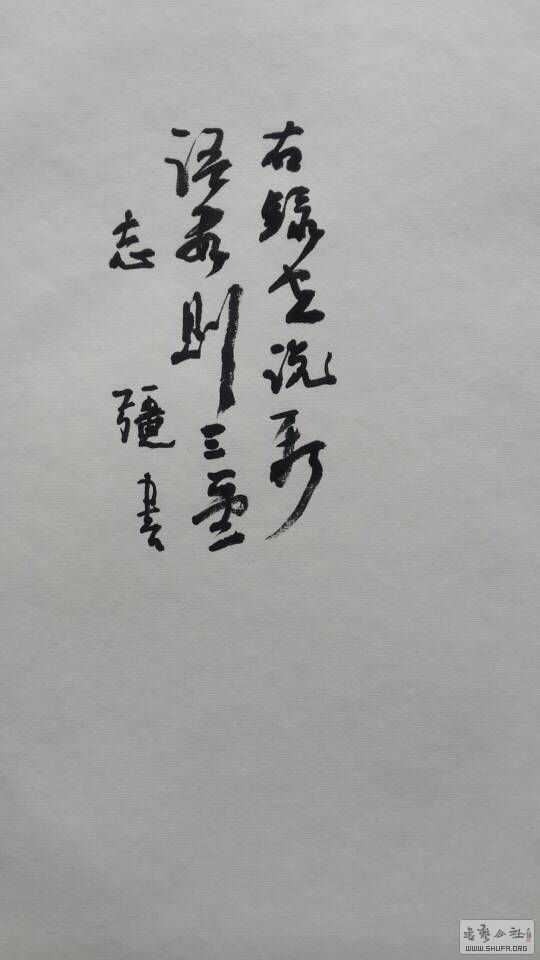 右錄世説新
語數則三
志彊書
書藝公社
WWW.SHUFA.ORG